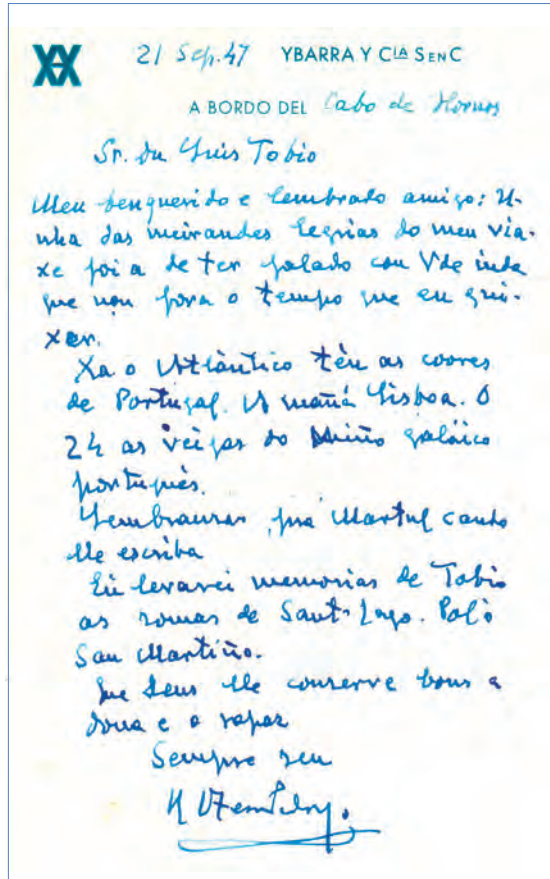 21 Sep. 47 YBARRA Y CIA S EN C
A BORDO DEL Cabo de Hornos
Sr. Dn Luis Tobio
Meu benquerido e lembrado amigo: U-
nha das meirandes legrias do meu via-
xe foi a de ter falado con Vde inda
que non fora o tempo que eu qui-
xer.
Xa o Atlàntico tèn as coores
de Portugal. A mañá Lisboa. O
24 as veigas do Miño galáico
portugués.
Lembranzas pra Martul cando
lle escriba
Eu levarei memorias de Tobio
as romas de Sant-Iago. Pol-o
San Martiño.
Que Deus lle conserve bons a
dona e o rapaz
Sempre seu